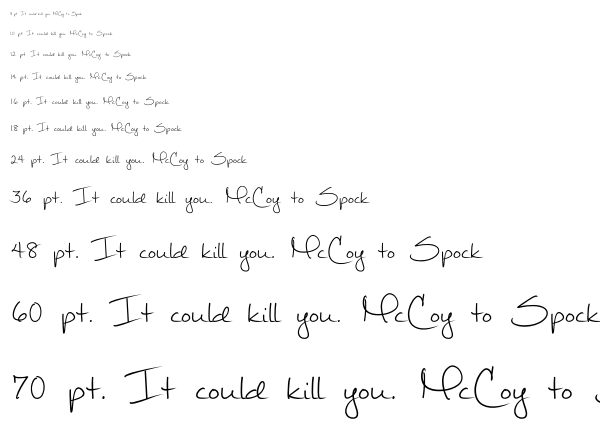 8 pt. It could kill you. McCoy to Spock
10 pt. It could kill you. McCoy to Spock
12 pt. It could kill you. McCoy to Spock
14 pt. It could kill you. McCoy to Spock
16 pt. It could kill you. McCoy to Spock
18 pt. It could kill you. McCoy to Spock
24 pt. It could kill you. McCoy to Spock
36 pt. It could kill you. McCoy to Spock
48 pt. It could kill you. McCoy to Spock
60 pt. It could kill you. McCoy to Spock
70 pt. It could kill you. McCoy to